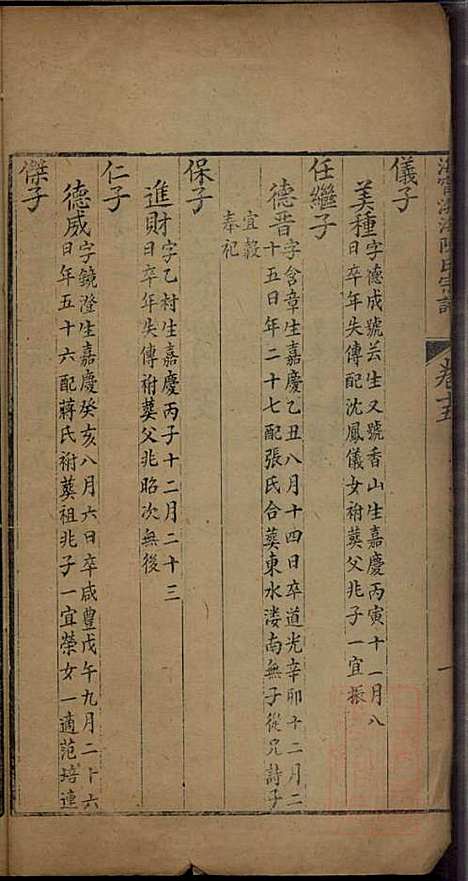 海寧渤海陳氏宗譜
卷十五
儀子
美種 字德成號芸生又號香山生嘉慶丙寅十一月八
日卒年失傳配沈鳳儀女祔葬父兆子一宜振
任繼子
德晋 字含章生嘉慶乙丑八月十四日卒道光辛卯十二月二
十五日年二十七配張氏合葬東水漊南無子從兄詩子
宜穀
奉祀
保子
進財 字乙村生嘉慶丙子十二月二十三
日卒年失傳祔葬父兆昭次無後
仁子
德威 字鏡澄生嘉慶癸亥八月六日卒咸豐戊午九月二十六
日年五十六配蔣氏祔葬祖兆子一宜榮女一適范培連
傑子